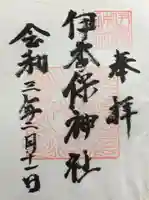 奉拝
伊香保神社
令和三年二月十一日